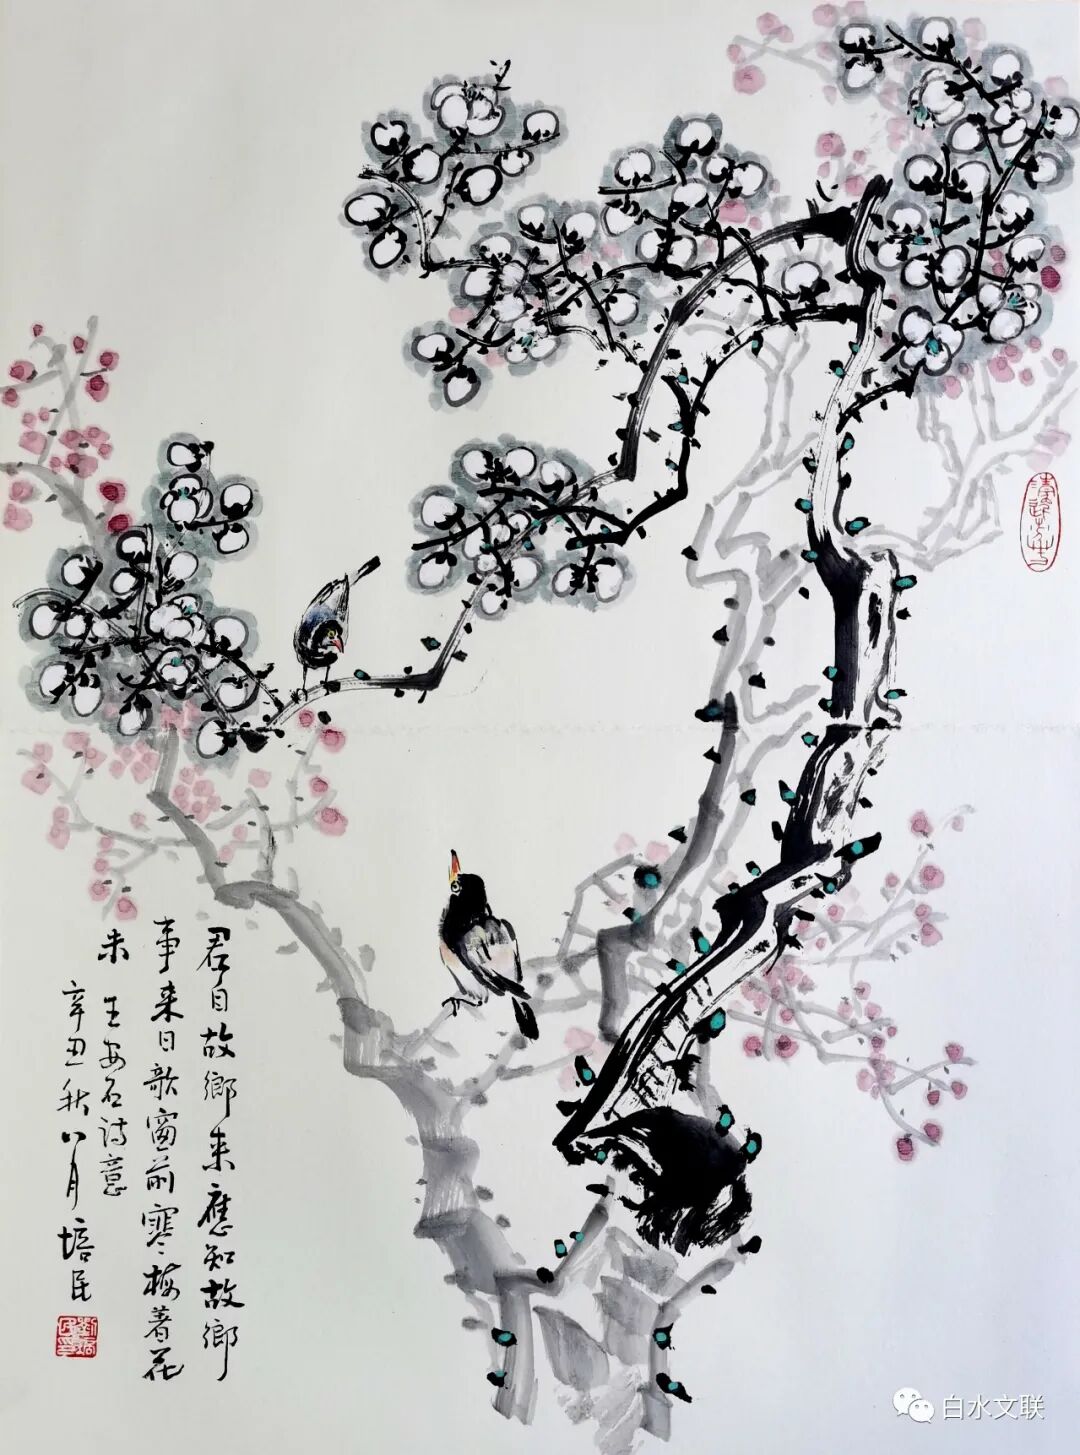 君自故鄉来應知故鄉
事来日窗前寒梅著花
未 王安石诗意
辛丑秋八月 培民
白水文联